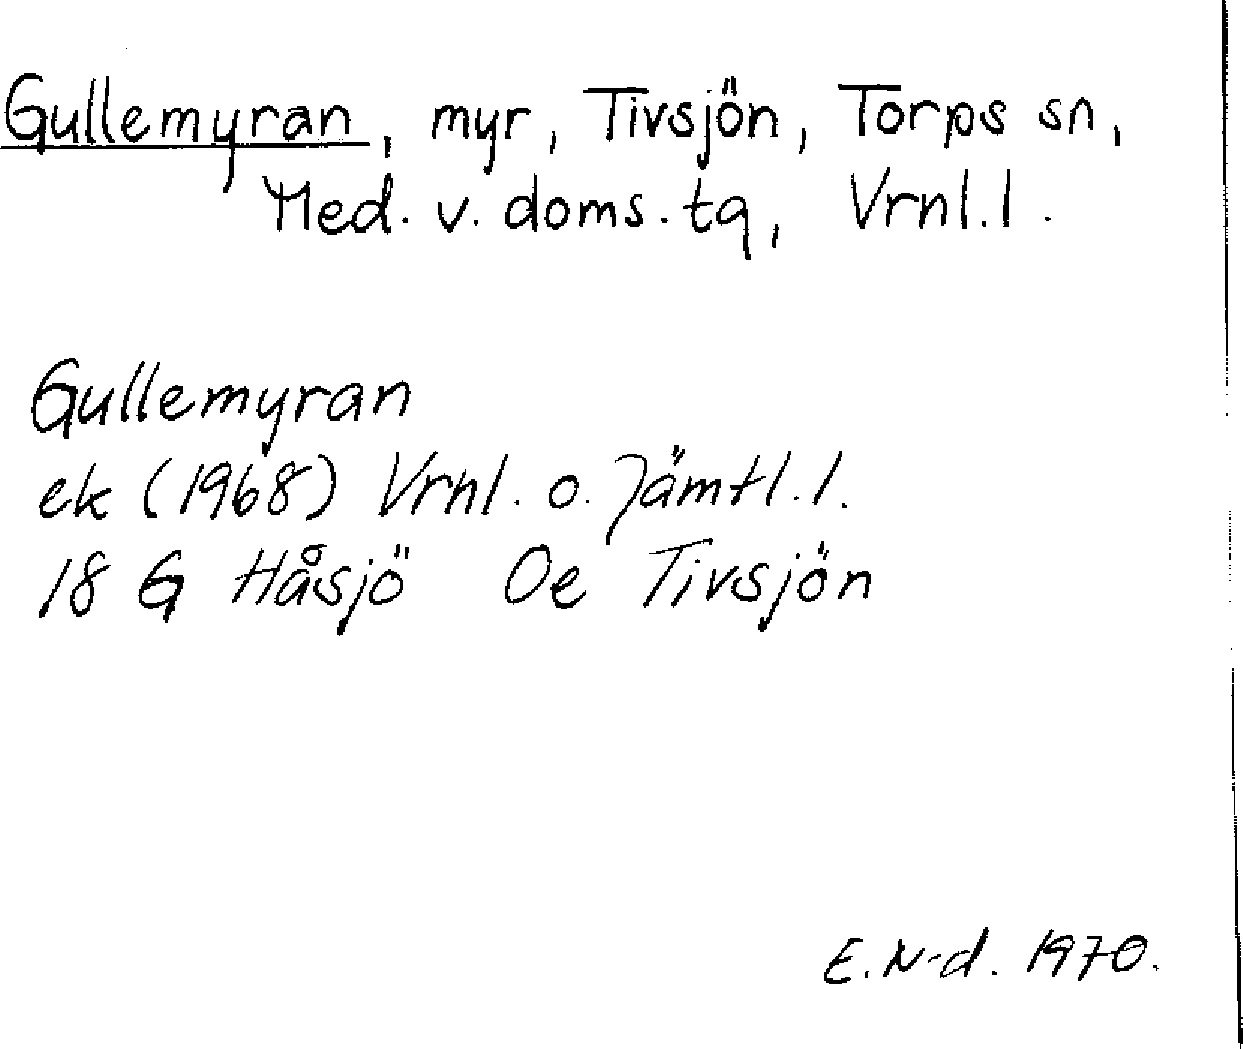 Gullemyran, myr, Tivsjön, Torps sn,
Med. v. doms. tg, Vrnl. l.
Gullemyran
ek (1968) Vrnl. o. Jämtl. l.
18 G Håsjö Oe Tivsjön
E. N-d. 1970.